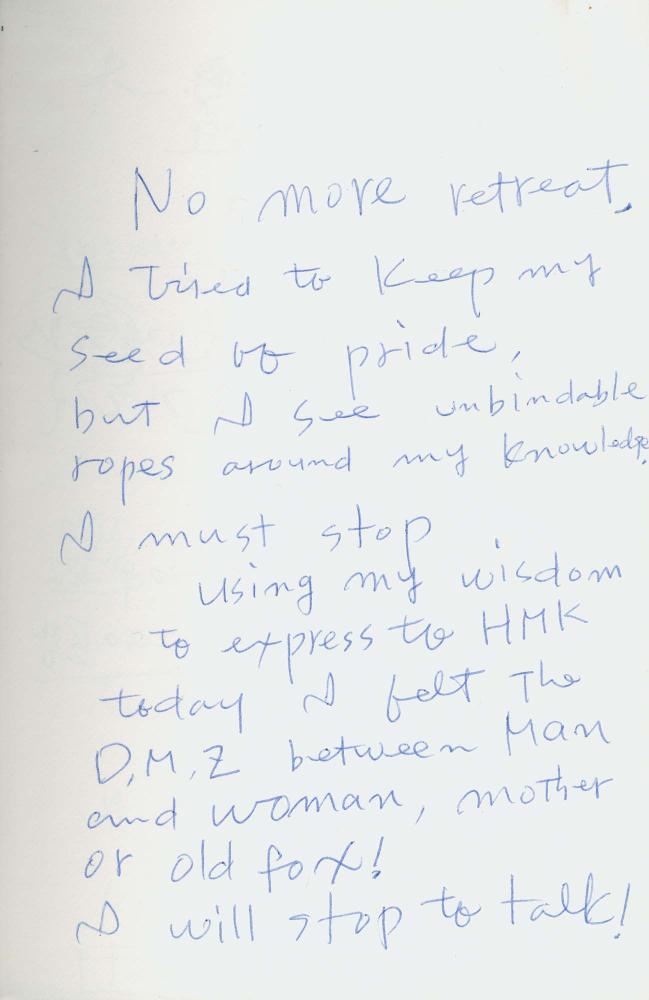 No more retreat,
I tried to keep my
seed of pride,
but I see unbindable
ropes around my knowledge.
I must stop
using my wisdom
to express to HMK
today I felt The
D,M,Z between Man
and woman, mother
or old fox!
I will stop to talk!